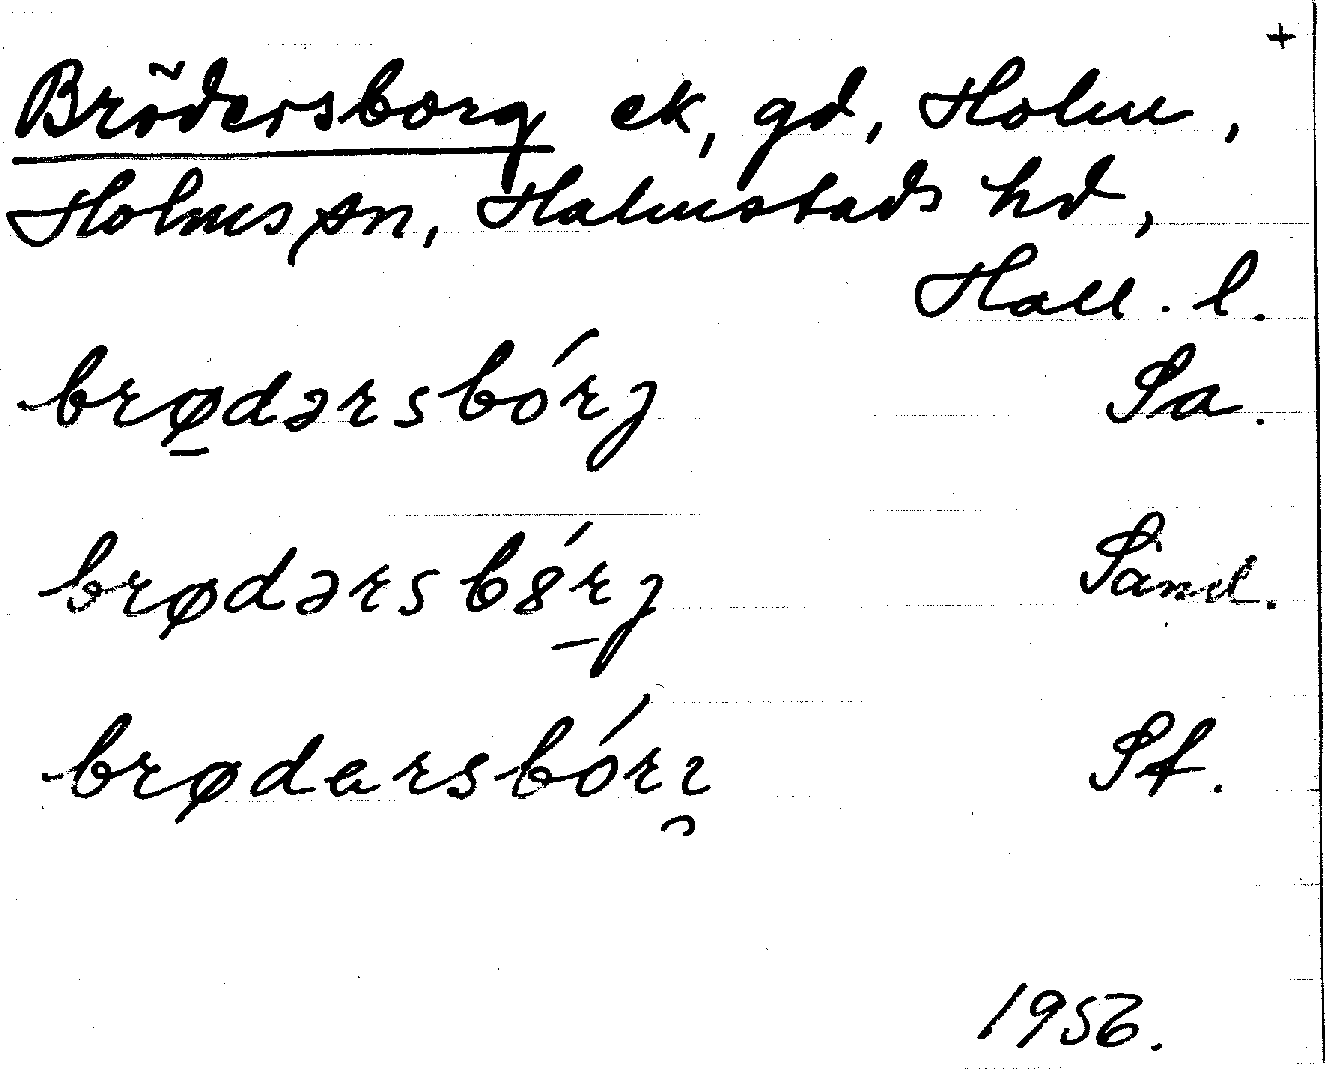 +
Brödersborg ek, gd, Holm,
Holms sn, Halmstads hd,
Hall. l.
brø̲dərsbórȷ Sa.
brødərsb8́r̲ȷ Sand.
brødarsbórı̯ Sf.
1956.